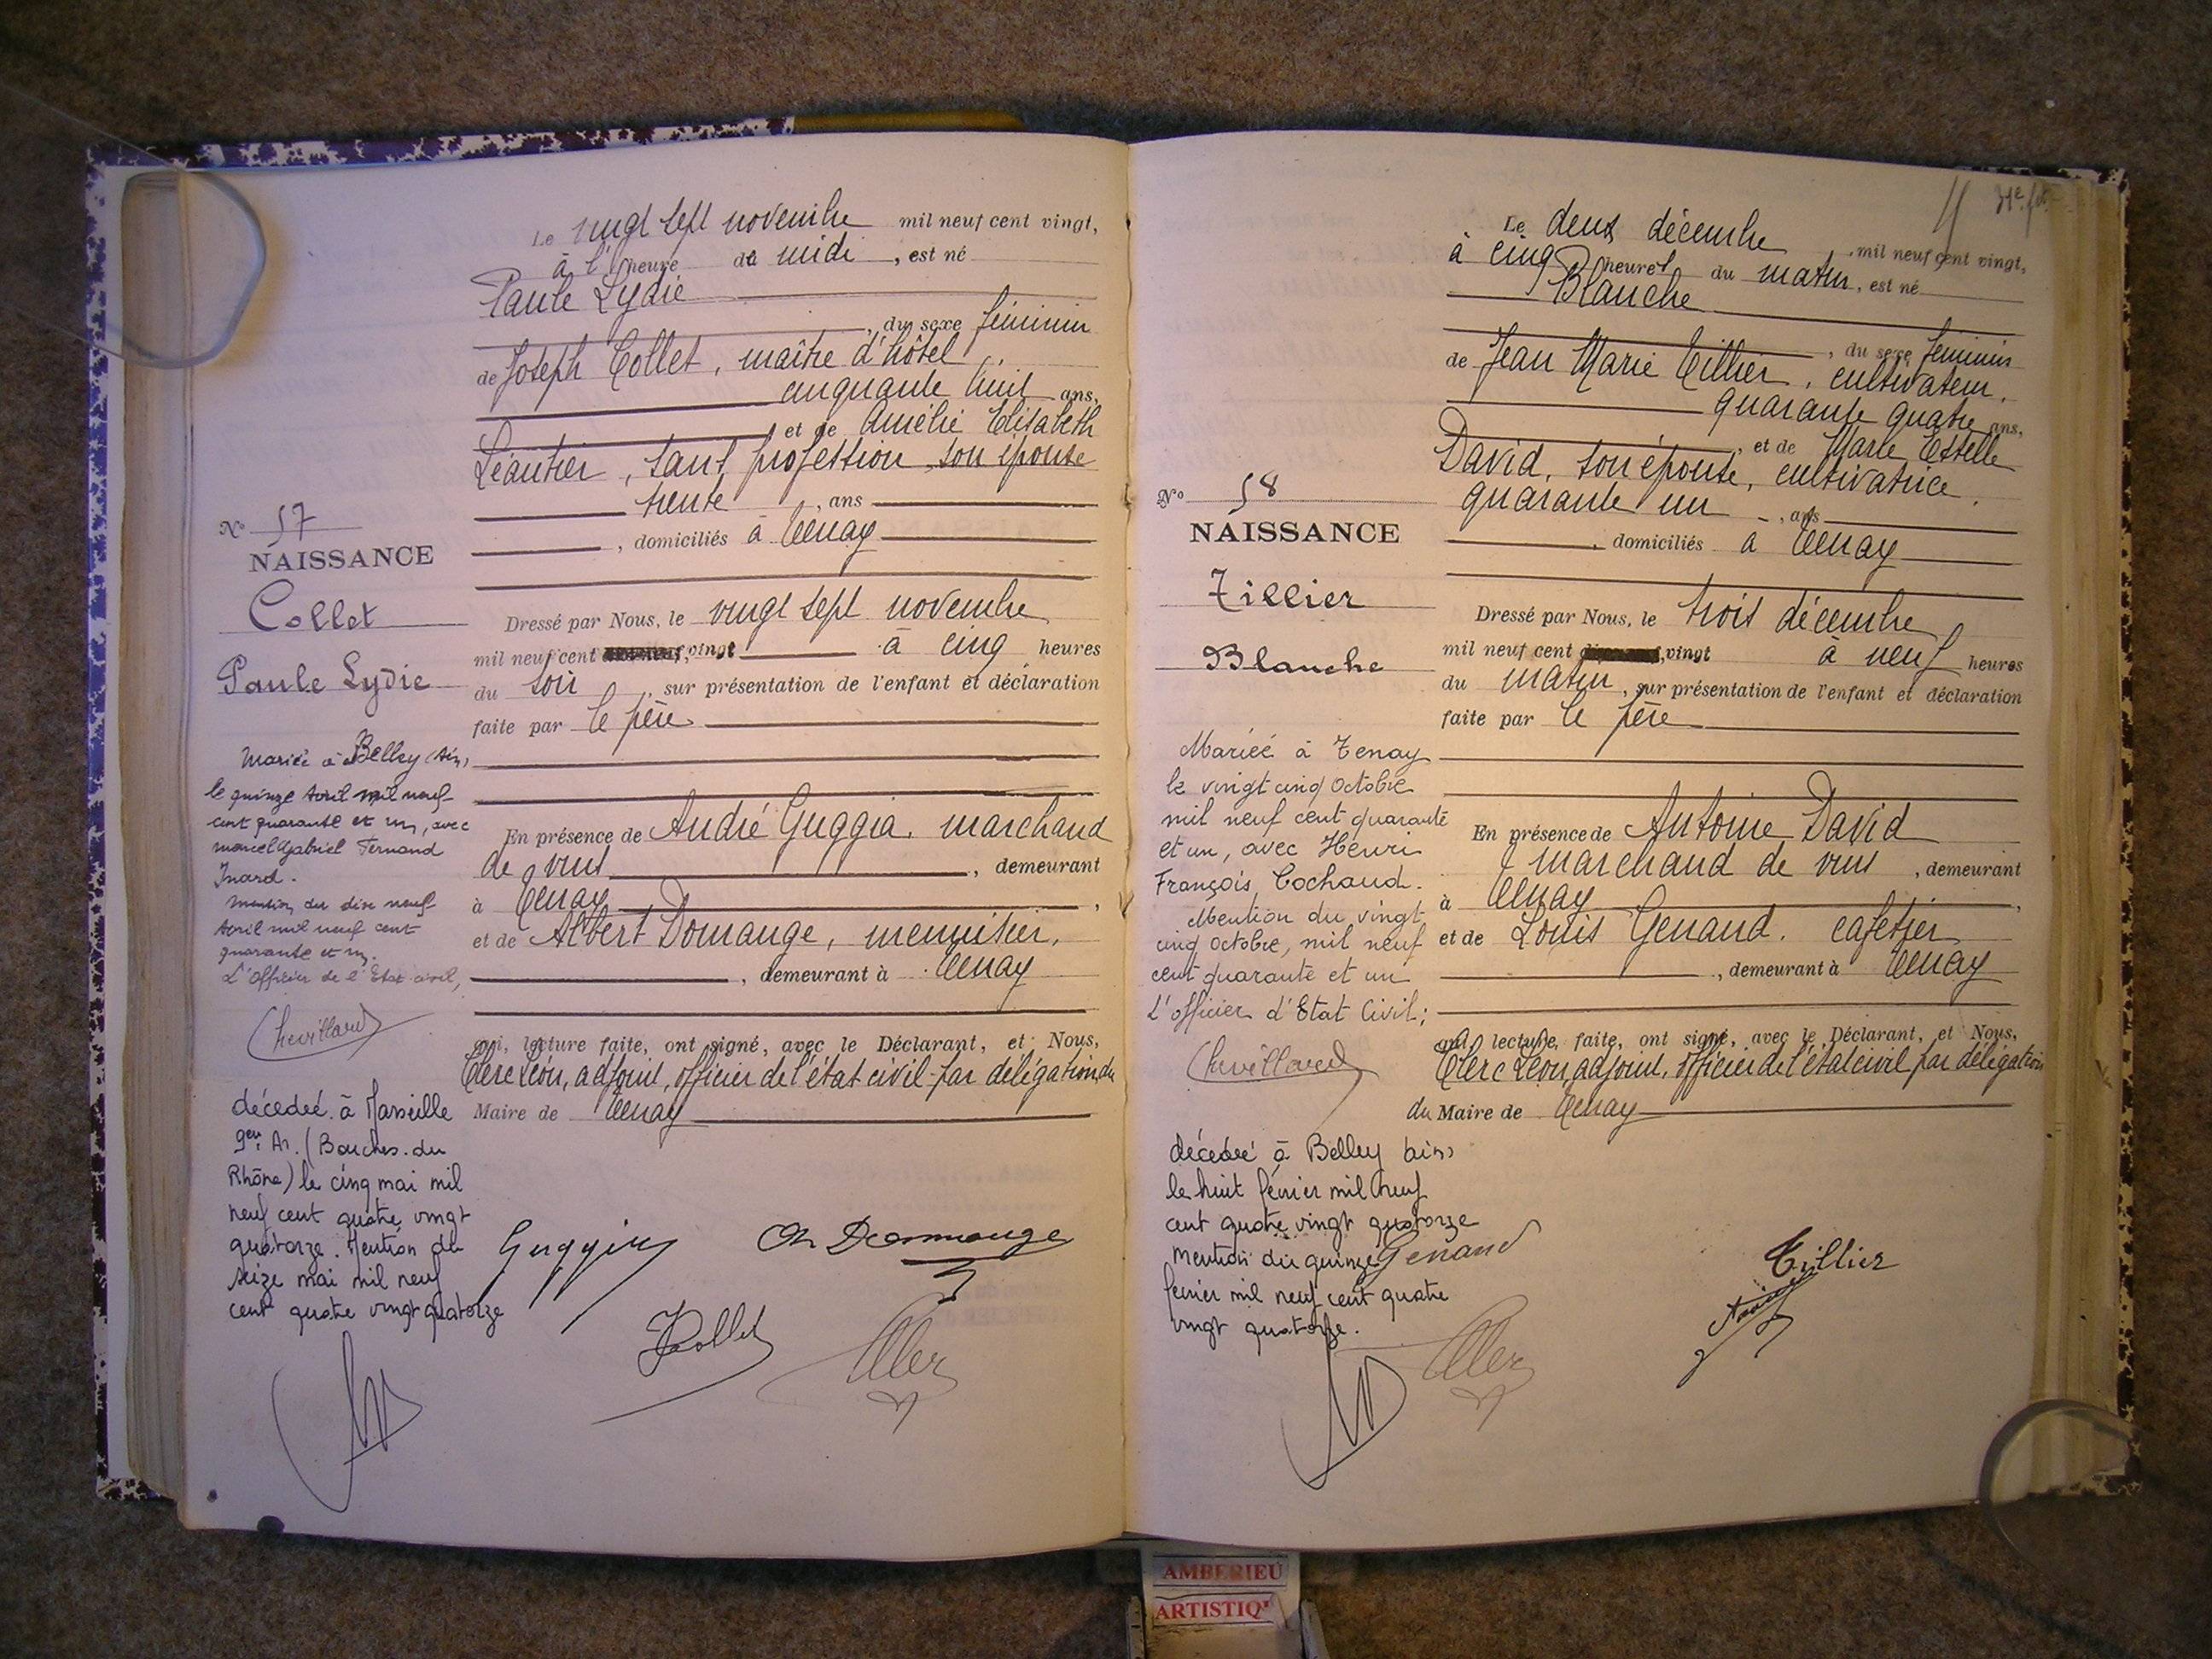 Le vingt sept novembre mil neuf cent vingt,
à l' heure de midi, est né
Paule Lydie
, du sexe féminin
de Joseph Collet, maître d'hôtel,
cinquante huit ans,
et de Amélie Elisabeth
Léautier, sans profession, son épouse
trente, ans
, domiciliés à Tenay
No 57
NAISSANCE
Collet
Paule Lydie
Dressé par Nous, le vingt sept novembre
mil neuf cent vingt à cinq heures
du soir, sur présentation de l'enfant et déclaration
faite par le père
En présence de André Guggia, marchand
de vins, demeurant
à Tenay,
et de Albert Domange, menuisier,
, demeurant à Tenay
qui, lecture faite, ont signé, avec le Déclarant, et Nous,
Clerc Léon, adjoint, officier de l'état civil par délégation du
Maire de Tenay
Mariée à Belley (Ain)
le quinze Avril mil neuf
cent quarante et un, avec
Marcel Gabriel Fernand
Inard.
Mention du dix neuf
Avril mil neuf cent
quarante et un.
L'Officier de l'Etat civil,
Chevillard
décédée à Marseille
9em Ar. (Bouches. du
Rhône) le cinq mai mil
neuf cent quatre vingt
quatorze. Mention du
seize mai mil neuf
cent quatre vingt quatorze
Collet
Le deux décembre, mil neuf cent vingt,
à cinq heures du matin, est né
Blanche
, du sexe féminin
de Jean Marie Tillier, cultivateur,
quarante quatre ans,
et de Marie Estelle
David, son épouse, cultivatrice,
quarante un, ans
, domiciliés à Tenay
No 58
NAISSANCE
Tillier
Blanche
Dressé par Nous, le trois décembre
mil neuf cent vingt à neuf heures
du matin, sur présentation de l'enfant et déclaration
faite par le père
En présence de Antoine David
marchand de vins, demeurant
à Tenay,
et de Louis Genand, cafetier
, demeurant à Tenay
qui, lecture faite, ont signé, avec le Déclarant, et Nous,
Clerc Léon, adjoint, officier de l'état civil par délégation
du Maire de Tenay
Mariée à Tenay
le vingt cinq Octobre
mil neuf cent quarante
et un, avec Henri
François Cochaud.
Mention du vingt
cinq Octobre, mil neuf
cent quarante et un
L'officier d'Etat Civil;
Chevillard
décédée à Belley (Ain)
le huit février mil neuf
cent quatre vingt quatorze
Mention du quinze
février mil neuf cent quatre
vingt quatorze.
Genand
Tillier
AMBERIEU
ARTISTIQ